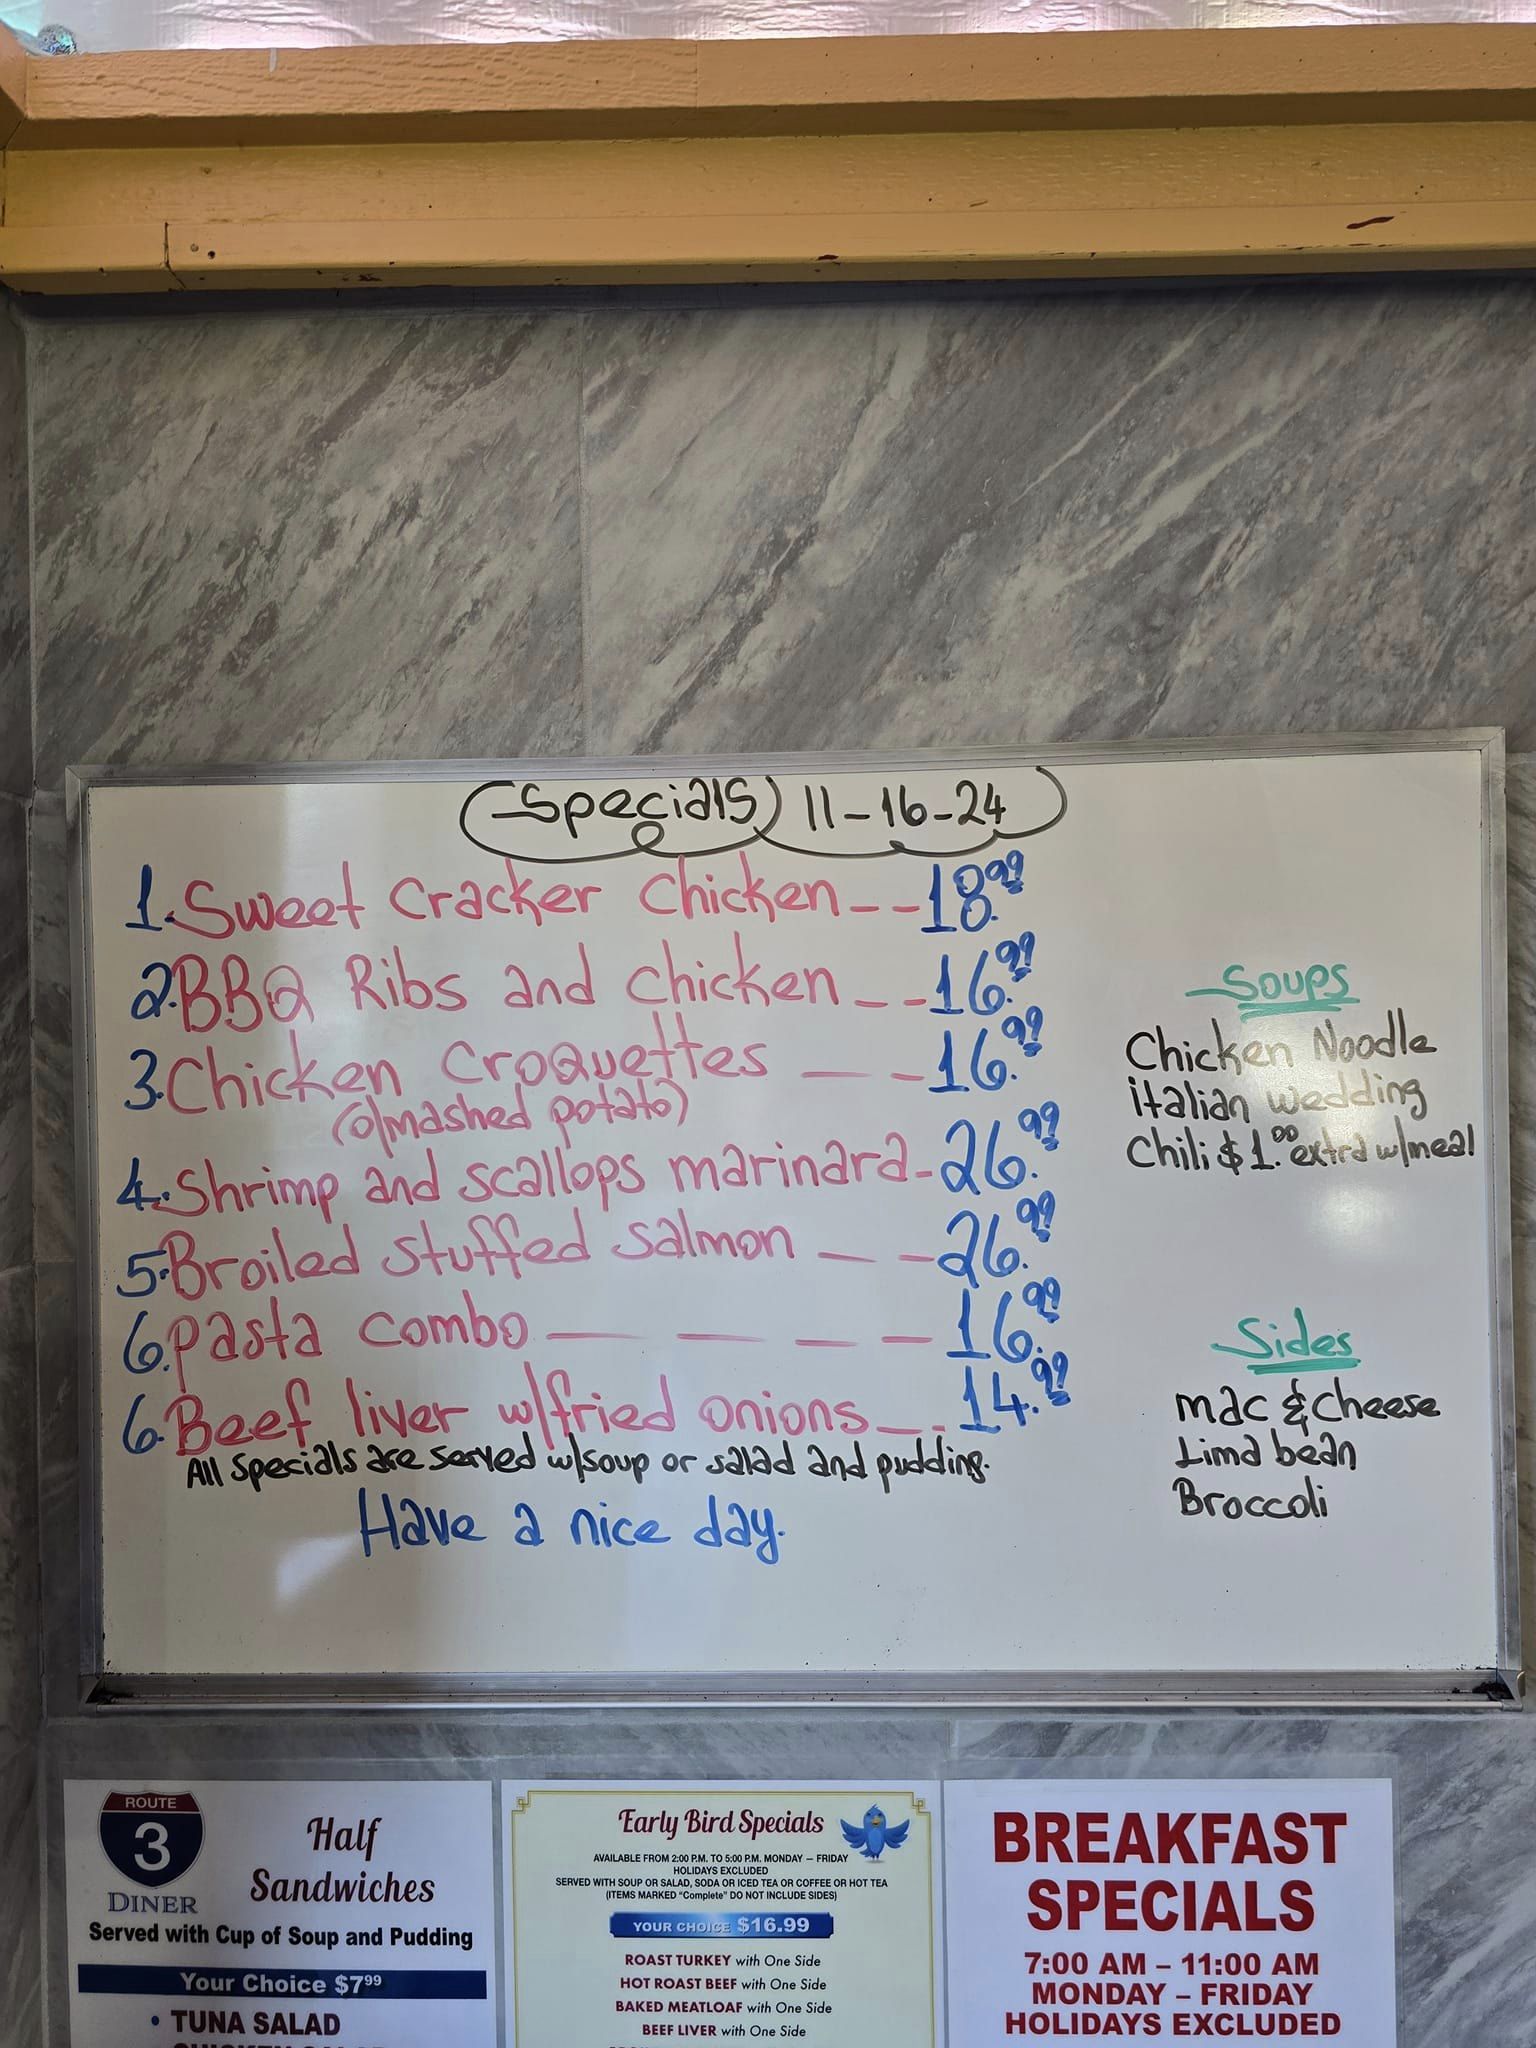 Specials 11-16-24
1. Sweet Cracker Chicken -- 18.99
2. BBQ Ribs and chicken -- 16.99
3. Chicken Croquettes -- 16.99
(o/mashed potato)
4. Shrimp and scallops marinara - 26.99
5. Broiled stuffed salmon -- 26.99
6. pasta combo ---- 16.99
6. Beef liver w/fried onions -- 14.99
All specials are served w/soup or salad and pudding.
Have a nice day.
Soups
Chicken Noodle
italian wedding
Chili $1.00 extra w/meal
Sides
mac & cheese
Lima bean
Broccoli
ROUTE
3
DINER
Half
Sandwiches
Served with Cup of Soup and Pudding
Your Choice $7.99
• TUNA SALAD
Early Bird Specials
AVAILABLE FROM 2:00 P.M. TO 5:00 P.M. MONDAY – FRIDAY
HOLIDAYS EXCLUDED
SERVED WITH SOUP OR SALAD, SODA OR ICED TEA OR COFFEE OR HOT TEA
(ITEMS MARKED "Complete" DO NOT INCLUDE SIDES)
YOUR CHOICE $16.99
ROAST TURKEY with One Side
HOT ROAST BEEF with One Side
BAKED MEATLOAF with One Side
BEEF LIVER with One Side
BREAKFAST
SPECIALS
7:00 AM – 11:00 AM
MONDAY – FRIDAY
HOLIDAYS EXCLUDED